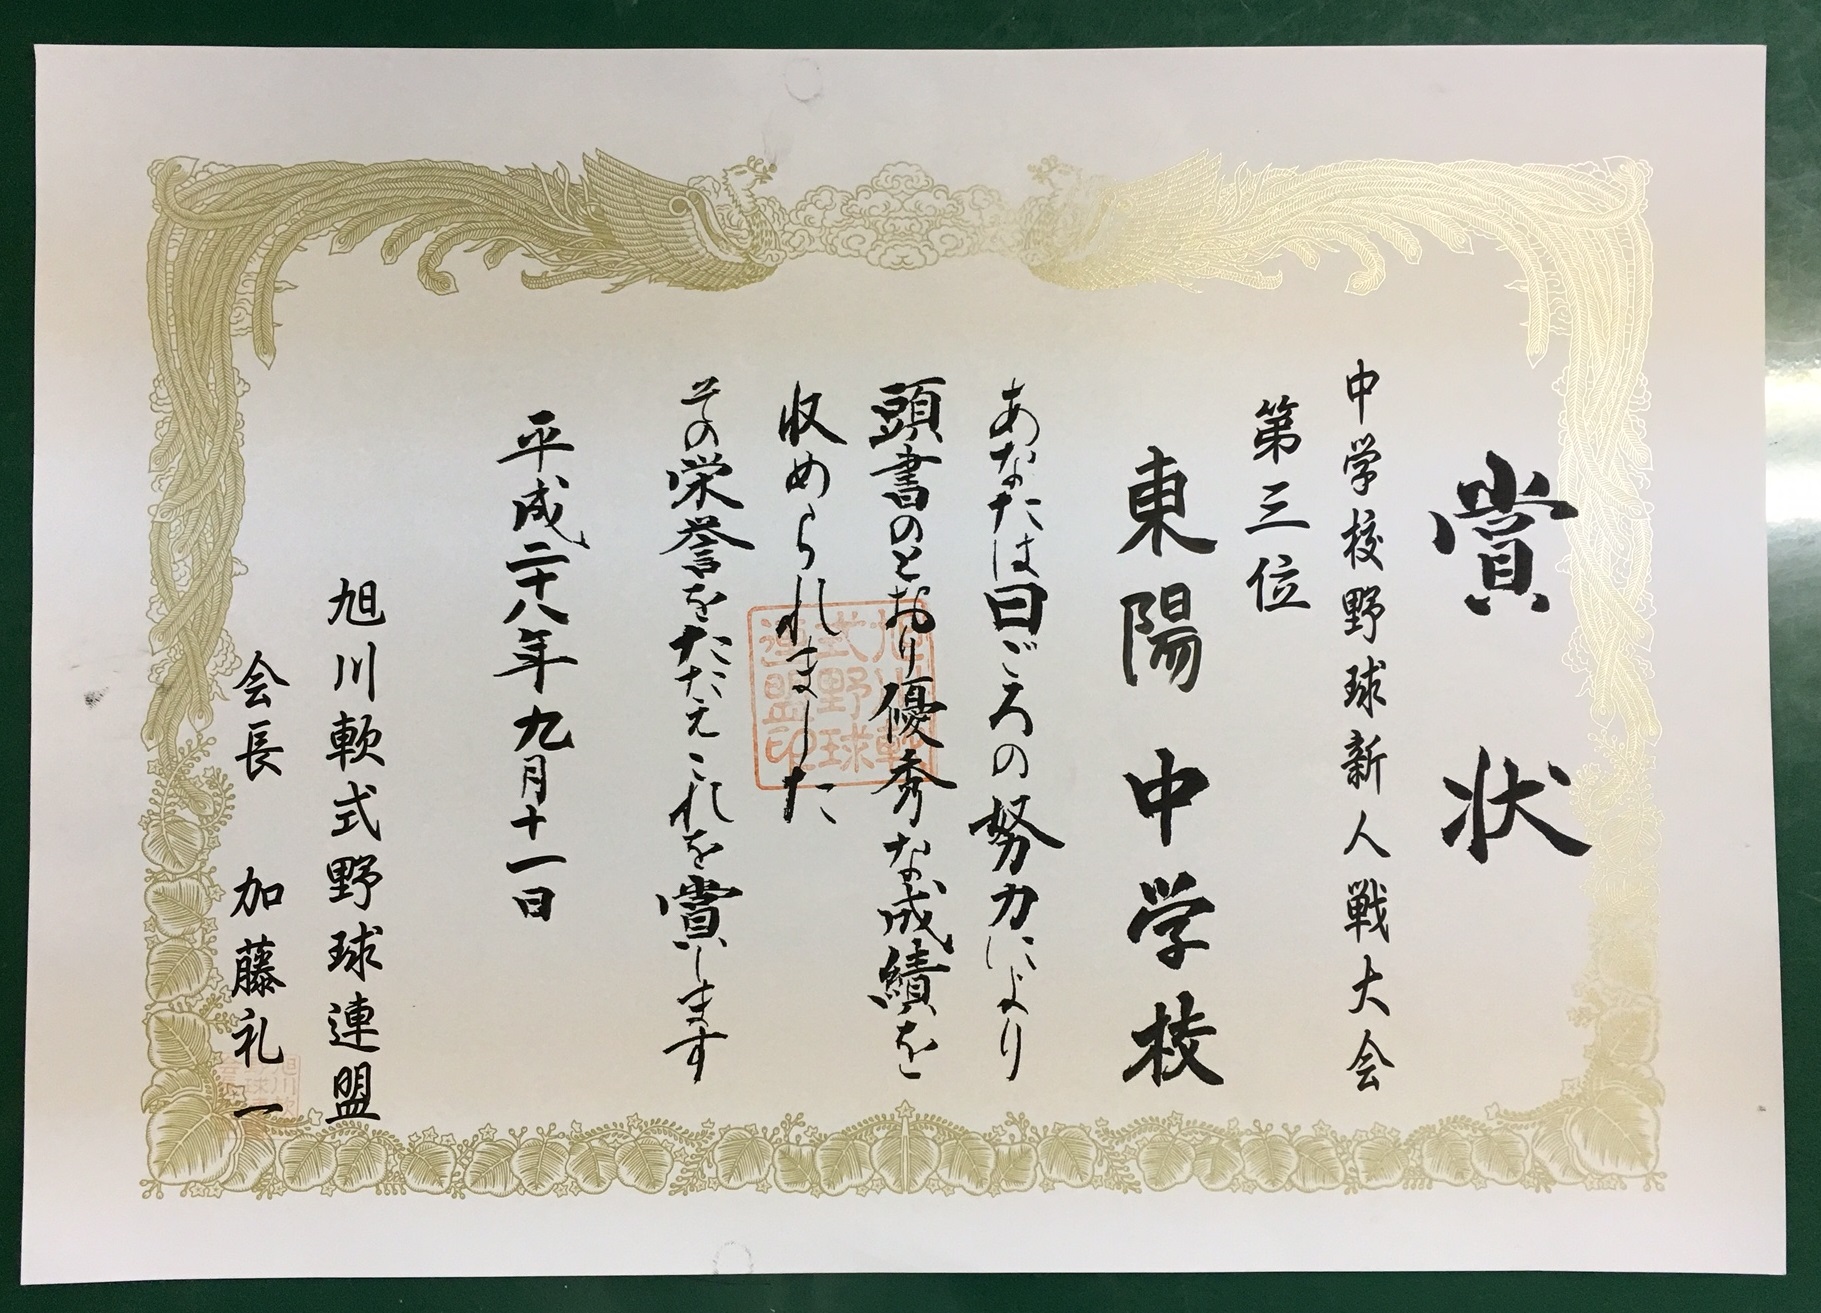 賞状
中学校野球新人戦大会
第三位
東陽中学校
あなたは日ごろの努力により
頭書のとおり優秀な成績を
収められました
その栄誉をたたえこれを賞します
平成二十八年九月十一日
旭川軟式野球連盟
会長 加藤礼一
旭川軟
式野球
連盟印